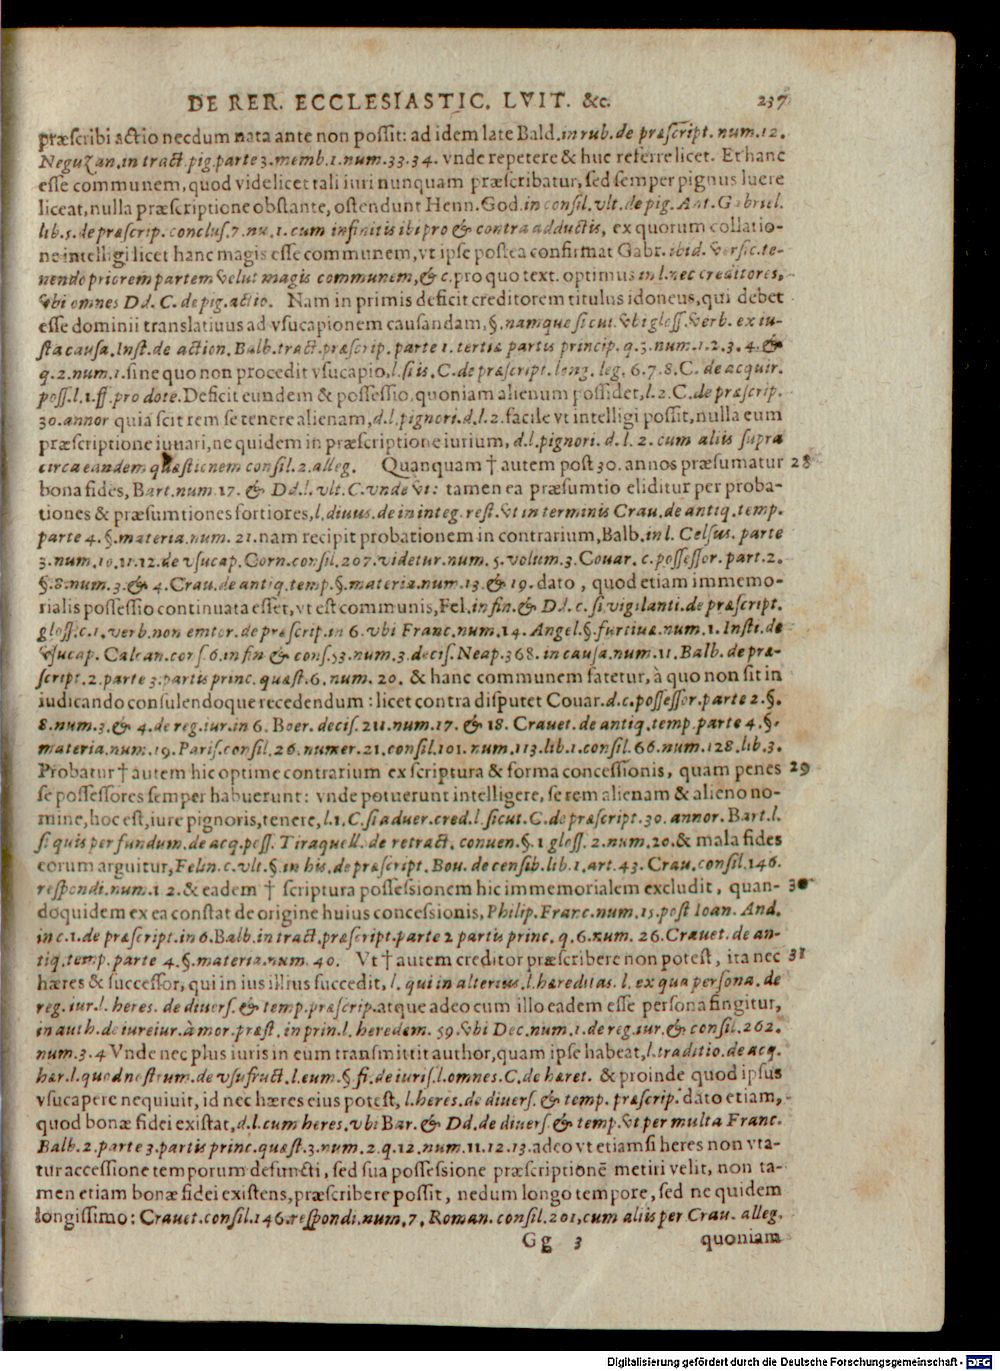 DE RER. ECCLESIASTIC. LVIT. &c. 237
præscribi actio necdum nata ante non possit: ad idem late Bald. in rub. de præscript. num. 12.
Neguzan. in tract. pig. parte 3. memb. 1. num. 33. 34. vnde repetere & huc referre licet. Et hanc
esse communem, quod videlicet tali iuri nunquam præscribatur, sed semper pignus luere
liceat, nulla præscriptione obstante, ostendunt Henn. God. in consil. vlt. de pig. Ant. Gabriel.
lib. 5. de præscrip. conclus. 7. nu. 1. cum infinitis ibi pro & contra adductis, ex quorum collatio-
ne intelligi licet hanc magis esse communem, vt ipse postea confirmat Gabr. ibid. versic. te-
nendo priorem partem velut magis communem, & c. pro quo text. optimus in l. nec creditores,
vbi omnes Dd. C. de pig. actio. Nam in primis deficit creditorem titulus idoneus, qui debet
esse dominii translatiuus ad vsucapionem causandam, §. namque sicut. vbi gloss. verb. ex iu-
sta causa. Inst. de action. Balb. tract. præscrip. parte 1. tertiæ partis princip. q. 3. num. 1. 2. 3. 4. &
q. 2. num. 1. sine quo non procedit vsucapio, l. si is. C. de præscript. long. leg. 6. 7. 8. C. de acquir.
poss. l. 1. ff. pro dote. Deficit eundem & possessio, quoniam alienum possidet, l. 2. C. de præscrip.
30. annor quia scit rem se tenere alienam, d. l. pignori. d. l. 2. facile vt intelligi possit, nulla eum
præscriptione iuuari, ne quidem in præscriptione iurium, d. l. pignori. d. l. 2. cum aliis supra
circa eandem quæstionem consil. 2. alleg. Quanquam † autem post 30. annos præsumatur 28
bona fides, Bart. num. 17. & Dd. l. vlt. C. vnde vi: tamen ea præsumtio eliditur per proba-
tiones & præsumtiones fortiores, l. diuus. de in integ. rest. vt in terminis Crau. de antiq. temp.
parte 4. §. materia. num. 21. nam recipit probationem in contrarium, Balb. in l. Celsus. parte
3. num. 10. 11. 12. de vsucap. Corn. consil. 207. videtur. num. 5. volum. 3. Couar. c. possessor. part. 2.
§. 8. num. 3. & 4. Crau. de antiq. temp. §. materia. num. 13. & 19. dato, quod etiam immemo-
rialis possessio continuata esset, vt est communis, Fel. in fin. & Dd. c. si vigilanti. de præscript.
gloss. c. 1. verb. non emtor. de præscrip. in 6. vbi Franc. num. 14. Angel. §. furtiuæ. num. 1. Insti. de
vsucap. Calcan. cons. 6. in fin & cons. 53. num. 3. decis. Neap. 368. in causa. num. 11. Balb. de præ-
script. 2. parte 3. partis princ. quæst. 6. num. 20. & hanc communem fatetur, à quo non sit in
iudicando consulendoque recedendum: licet contra disputet Couar. d. c. possessor. parte 2. §.
8. num. 3. & 4. de reg. iur. in 6. Boer. decis. 211. num. 17. & 18. Crauet. de antiq. temp. parte 4. §.
materia. num. 19. Paris. consil. 26. numer. 21. consil. 101. num. 113. lib. 1. consil. 66. num. 128. lib. 3.
Probatur † autem hic optime contrarium ex scriptura & forma concessionis, quam penes 29
se possessores semper habuerunt: vnde potuerunt intelligere, se rem alienam & alieno no-
mine, hoc est, iure pignoris, tenere, l. 1. C. si aduer. cred. l. sicut. C. de præscript. 30. annor. Bart. l.
si quis per fundum. de acq. poss. Tiraquell. de retract. conuen. §. 1 gloss. 2. num. 20. & mala fides
eorum arguitur, Felin. c. vlt. §. in his. de præscript. Bou. de censib. lib. 1. art. 43. Crau. consil. 146.
respondi. num. 12. & eadem † scriptura possessionem hic immemorialem excludit, quan- 30
doquidem ex ea constat de origine huius concessionis, Philip. Franc. num. 15. post Ioan. And.
in c. 1. de præscript. in 6. Balb. in tract. præscript. parte 2 partis princ. q. 6. num. 26. Crauet. de an-
tiq. temp. parte 4. §. materia. num. 40. Vt † autem creditor præscribere non potest, ita nec 31
hæres & successor, qui in ius illius succedit, l. qui in alterius. l. hæreditas. l. ex qua persona. de
reg. iur. l. heres. de diuers. & temp. præscrip. atque adeo cum illo eadem esse persona fingitur,
in auth. de iureiur. à mor. præst. in prin. l. heredem. 59. vbi Dec. num. 1. de reg. iur. & consil. 262.
num. 3. 4 Vnde nec plus iuris in eum transmittit author, quam ipse habeat, l. traditio. de acq.
hær. l. quod nostrum. de vsufruct. l. eum. §. fi. de iuris. l. omnes. C. de hæret. & proinde quod ipsus
vsucapere nequiuit, id nec hæres eius potest, l. heres. de diuers. & temp. præscrip. dato etiam,
quod bonæ fidei existat, d. l. cum heres. vbi Bar. & Dd. de diuers. & temp. vt per multa Franc.
Balb. 2. parte 3. partis princ. quæst. 3. num. 2. q. 12. num. 11. 12. 13. adeo vt etiamsi heres non vta-
tur accessione temporum defuncti, sed sua possessione præscriptionē metiri velit, non ta-
men etiam bonæ fidei existens, præscribere possit, nedum longo tempore, sed ne quidem
longissimo: Crauet. consil. 146. respondi. num. 7. Roman. consil. 201, cum aliis per Crau. alleg.
Gg 3 quoniam
Digitalisierung gefördert durch die Deutsche Forschungsgemeinschaft - DFG